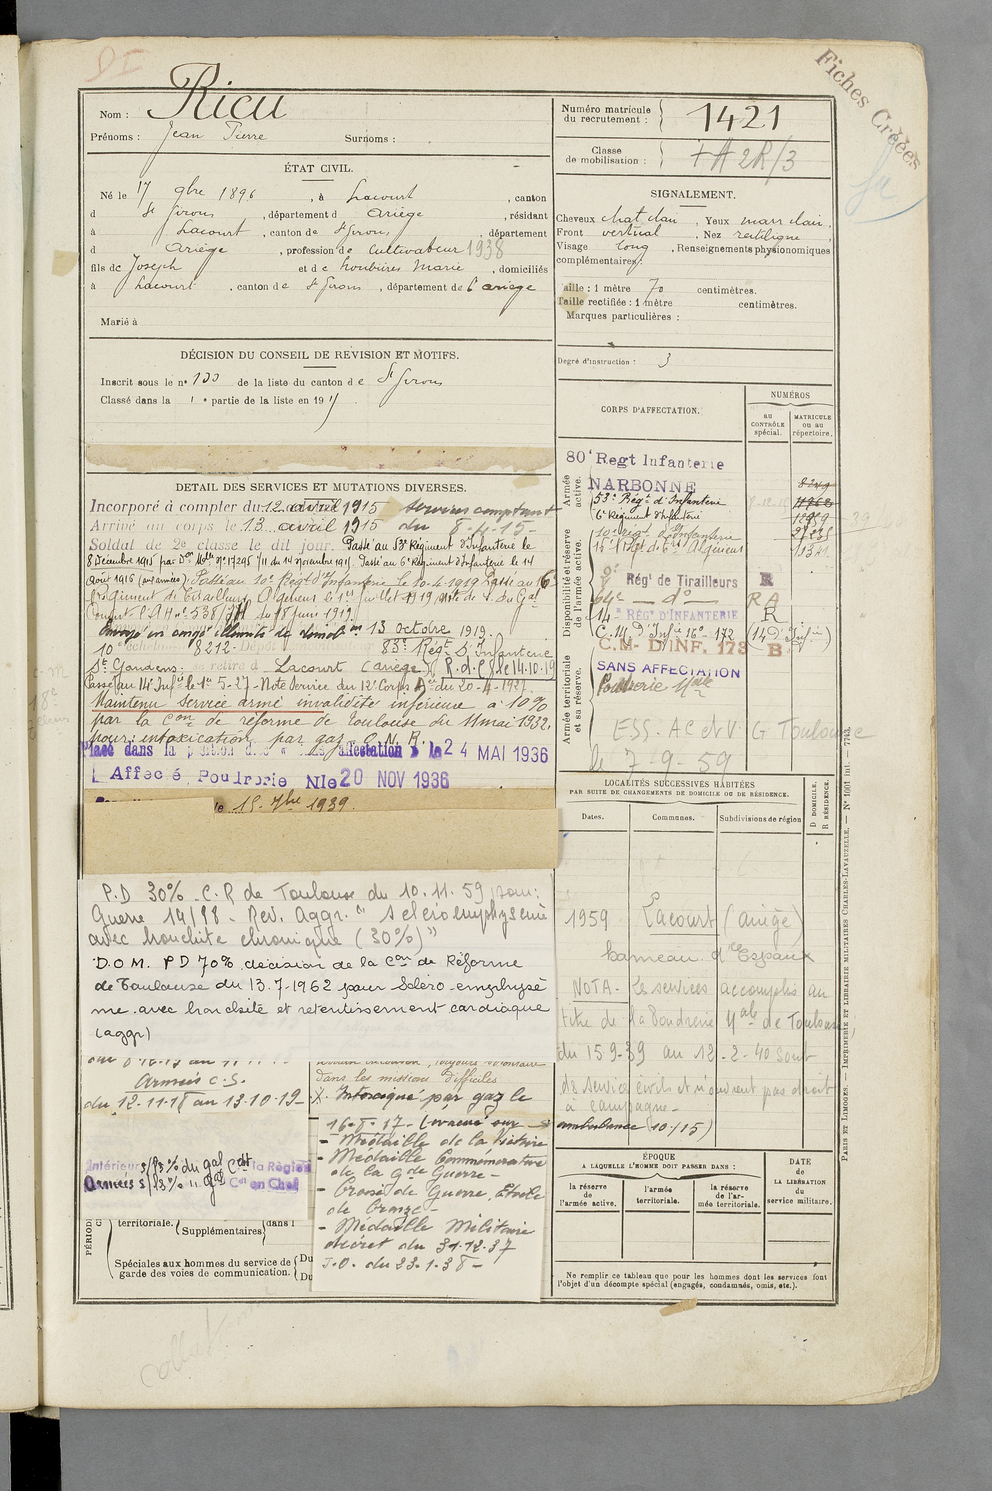 DI
Fiches Créées
Nom : Ricu
Prénoms : Jean Pierre Surnoms :
ÉTAT CIVIL.
Né le 17 9bre 1896, à Lacourt, canton
d St Girons, département d Ariège, résidant
à Lacourt, canton de St Girons, département
d Ariège, profession de Cultivateur 1938
fils de Joseph et de Loubières Marie, domiciliés
à Lacourt, canton de St Girons, département de l'ariège
Marié à
DÉCISION DU CONSEIL DE REVISION ET MOTIFS.
Inscrit sous le n° 133 de la liste du canton de St Girons
Classé dans la 1e partie de la liste en 1915
DETAIL DES SERVICES ET MUTATIONS DIVERSES.
Incorporé à compter du 12 avril 1915 services comptant
Arrivé au corps le 13 avril 1915 du 8-4-15-
Soldat de 2e classe le dit jour. Passé au 53e Régiment d'Infanterie le
8 Décembre 1915 par Don Mlle n° 17295 7/11 du 14 novembre 1915. Passé au 6e Régiment d'Infanterie le 14
Août 1916 (aux armées). Passé au 10e Régt d'Infanterie le 10-4-1919 Passé au 16e
Régiment de Tirailleurs Algériens le 1er juillet 1919 Note de S. du Gal
Commt l'A.H n° 538/ du 18 juin 1919.
Envoyé en congé illimité de démobon 13 octobre 1919.
10e échelon 8212 Dépôt 83e Régt d'Infanterie
St Gaudens: se retire à Lacourt (Ariège) R.d.C. le 14.10.19
Passé au 14e Infie le 1er 5-27-Note Service du 12e Corps Ae du 20-4-1927.
Maintenu service armé invalidité inférieure à 10%
par la Con de réforme de Toulouse du 11 mai 1932,
pour: intoxication par gaz O.N.A.
Placé dans la position dite « sans affectation » le 24 MAI 1936
Affecté Poudrerie Nle 20 NOV 1936
le 15 7bre 1939.
P.D 30% C.R de Toulouse du 10.11.59 pour:
Guerre 14/18 - Rev. Aggr. "Scléroemphysème
avec bronchite chronique (30%)"
D.O.M. P D 70% décision de la Con de Réforme
de Toulouse du 13-7-1962 pour Scléro-emphysè
me avec bronchite et retentissement cardiaque
(aggr)
Armées C.S.
du 12-11-18 au 13-10-19-
Intérieur S/P% du gal Cdt la Région
Armées S/P% " gal Ct en Chef
dans les missions difficiles
X. Intoxiqué par gaz le
16-8-17- (évacué sur
ambulance (10/15)
- Médaille de la Victoire
- Médaille Commémorative
de la Gde Guerre-
- Croix de Guerre, Étoile
de bronze-
- Médaille Militaire
décret du 31-12-37
J.O. du 23-1-38-
PÉRIOD
territoriale. Supplémentaires dans l
Spéciales aux hommes du service de garde des voies de communication. Du
Du
Numéro matricule du recrutement : 1421
Classe de mobilisation : +A 2R/3
SIGNALEMENT.
Cheveux chat clair, Yeux marr clair,
Front vertical, Nez rectiligne,
Visage long, Renseignements physionomiques
complémentaires:
Taille : 1 mètre 70 centimètres.
Taille rectifiée : 1 mètre centimètres.
Marques particulières :
Degré d'instruction : 3
CORPS D'AFFECTATION.
NUMÉROS
AU CONTRÔLE spécial.
MATRICULE OU AU répertoire.
Armée active.
80e Regt Infanterie
NARBONNE
53e Régt d'Infanterie
6e Régiment d'Infanterie
10e Régt d'Infanterie
16e Régt de Tirs Algériens
Disponibilité et réserve de l'armée active.
Régt de Tirailleurs R
64e - do - R A
14e RÉGt D'INFANTERIE R
C.M. D'Infie 16e-172 (14 D'Infie)
C.M. D'INF. 173 B
Armée territoriale et sa réserve.
SANS AFFECTATION
Poudrerie Nale
ESS. AC et V G Toulouse
le 7-9-59
LOCALITÉS SUCCESSIVES HABITÉES
PAR SUITE DE CHANGEMENTS DE DOMICILE OU DE RÉSIDENCE.
D DOMICILE.
R RÉSIDENCE.
Dates. Communes. Subdivisions de région
1959 Lacourt (Ariège)
hameau d'Espaux
NOTA - Les services accomplis au
titre de la Poudrerie Nale de Toulouse
du 15 9-39 au 12-2-40 sont
des services civils et n'ouvrent pas droit
à campagne -
ÉPOQUE
A LAQUELLE L'HOMME DOIT PASSER DANS :
DATE de LA LIBÉRATION du service militaire.
la réserve de l'armée active.
l'armée territoriale.
la réserve de l'armée territoriale.
Ne remplir ce tableau que pour les hommes dont les services font
l'objet d'un décompte spécial (engagés, condamnés, omis, etc.).
PARIS ET LIMOGES. — IMPRIMERIE ET LIBRAIRIE MILITAIRES CHARLES-LAVAUZELLE. — N° 1001 int. — 7743.